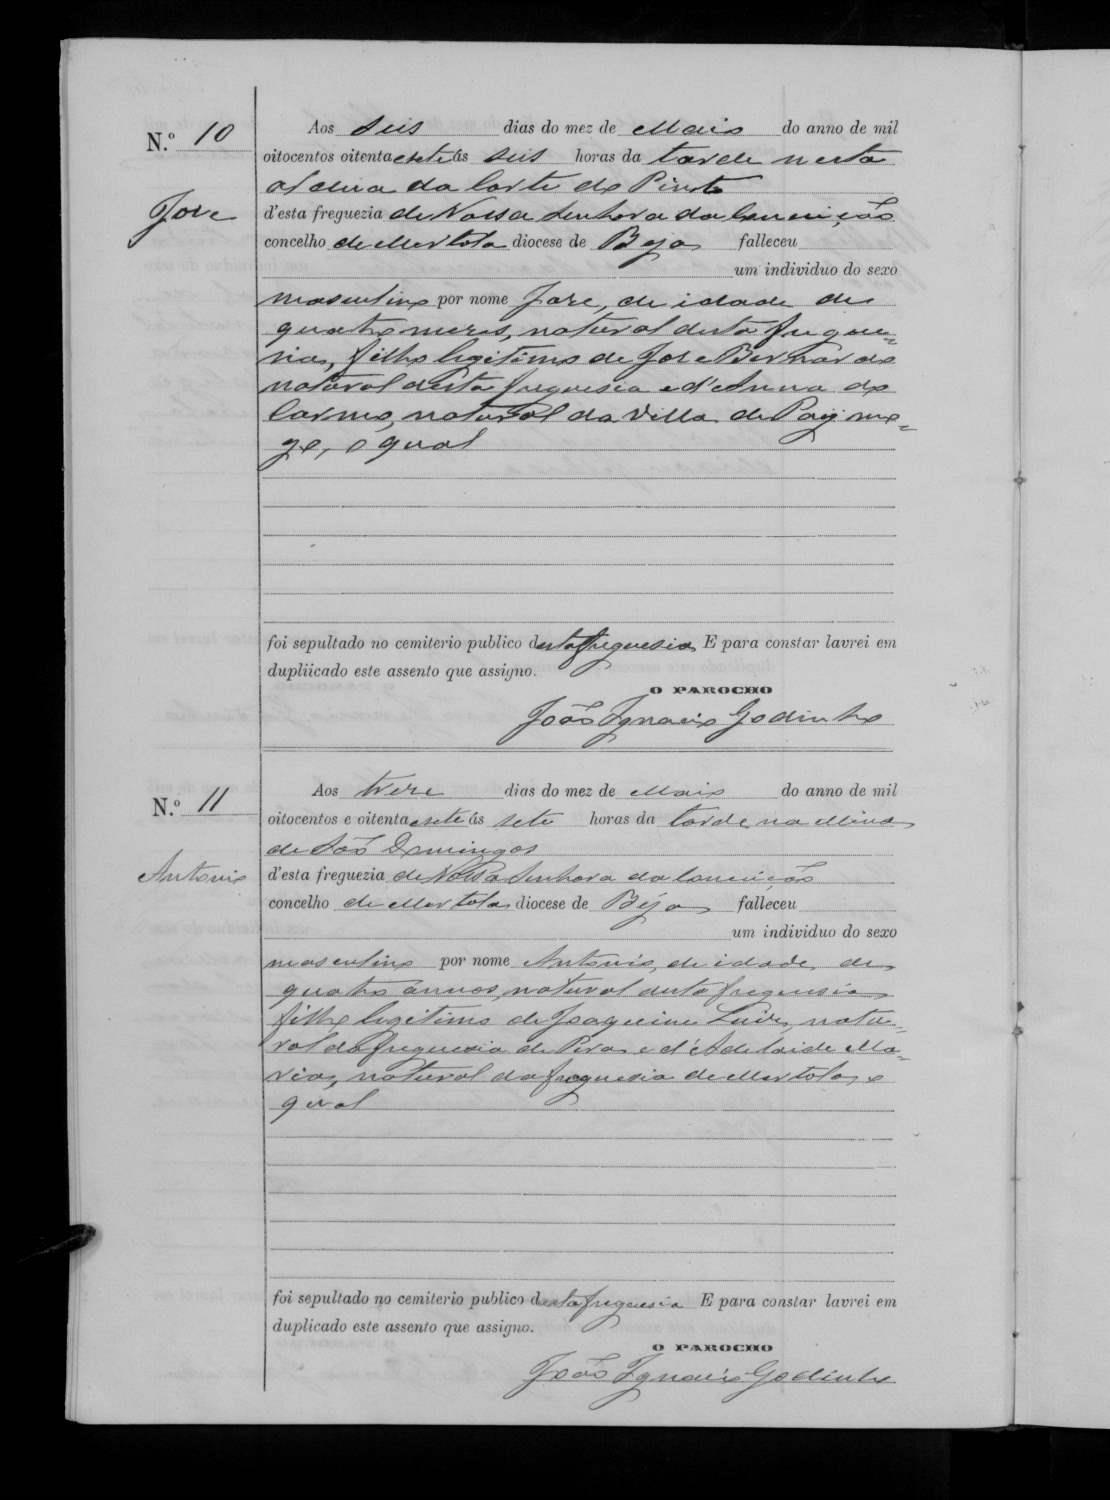 N.º 10
José
Aos seis dias do mez de Maio do anno de mil
oitocentos oitenta e sete ás seis horas da tarde nesta
aldeia da Corte do Pinto
d'esta freguezia de Nossa Senhora da Conceição
concelho de Mertola diocese de Beja falleceu
um individuo do sexo
masculino por nome José, de idade de
quatro mezes, natural desta fregue=
sia, filho legitimo de José Bernardo
natural desta freguesia e d'Anna do
Carmo, natural da Villa de Paymo=
go, o qual
foi sepultado no cemiterio publico desta freguesia E para constar lavrei em
dupliicado este assento que assigno.
O PAROCHO
João Ignacio Godinho
N.º 11
Antonio
Aos treze dias do mez de Maio do anno de mil
oitocentos e oitenta e sete ás sete horas da tarde, na Mina
de São Domingos
d'esta freguezia de Nossa Senhora da Conceição
concelho de Mertola diocese de Béja falleceu
um individuo do sexo
masculino por nome Antonio, de idade de
quatro annos, natural desta freguesia
filho legitimo de Joaquim Luiz, natu=
ral da freguesia de e d'Adelaide Ma=
ria, natural da freguesia de Mertola, o
qual
foi sepultado no cemiterio publico desta freguesia E para constar lavrei em
duplicado este assento que assigno.
O PAROCHO
João Ignacio Godinho